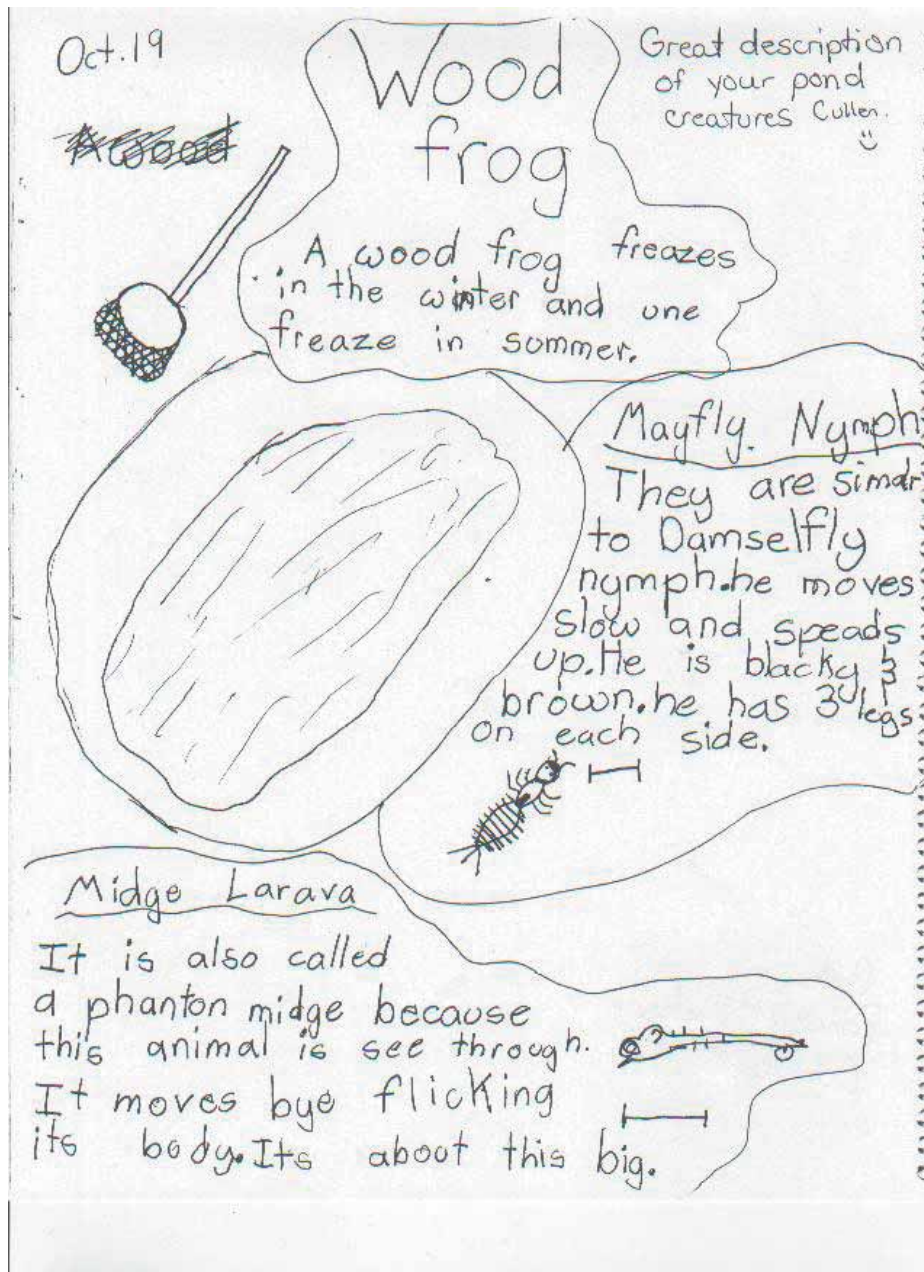 Oct.19
Wood
frog
Great description
of your pond
creatures Cullen.
A wood frog freazes
in the winter and une
freaze in summer.
Mayfly. Nymph
They are simalr
to Damselfly
nymph.he moves
slow and speads
up.He is blacky &
brown.he has 3 legs
on each side.
Midge Larava
It is also called
a phanton midge because
this animal is see through.
It moves bye flicking
its body.Its about this big.